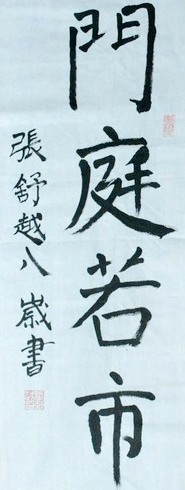 門庭若市
張舒越八歲書